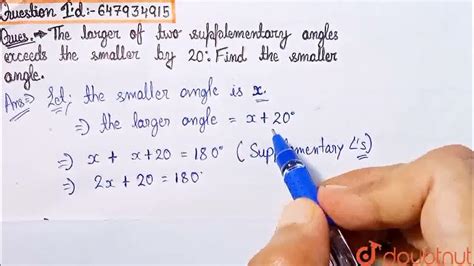 Question Id:-647934915
Ques.→ The larger of two supplementary angles
exceeds the smaller by 20°. Find the smaller
angle.
Ans⇒ Let, the smaller angle is x.
⇒ the larger angle = x + 20°
⇒ x + x+20 = 180° (Supplementary L's)
⇒ 2x + 20 = 180°
doubtnut